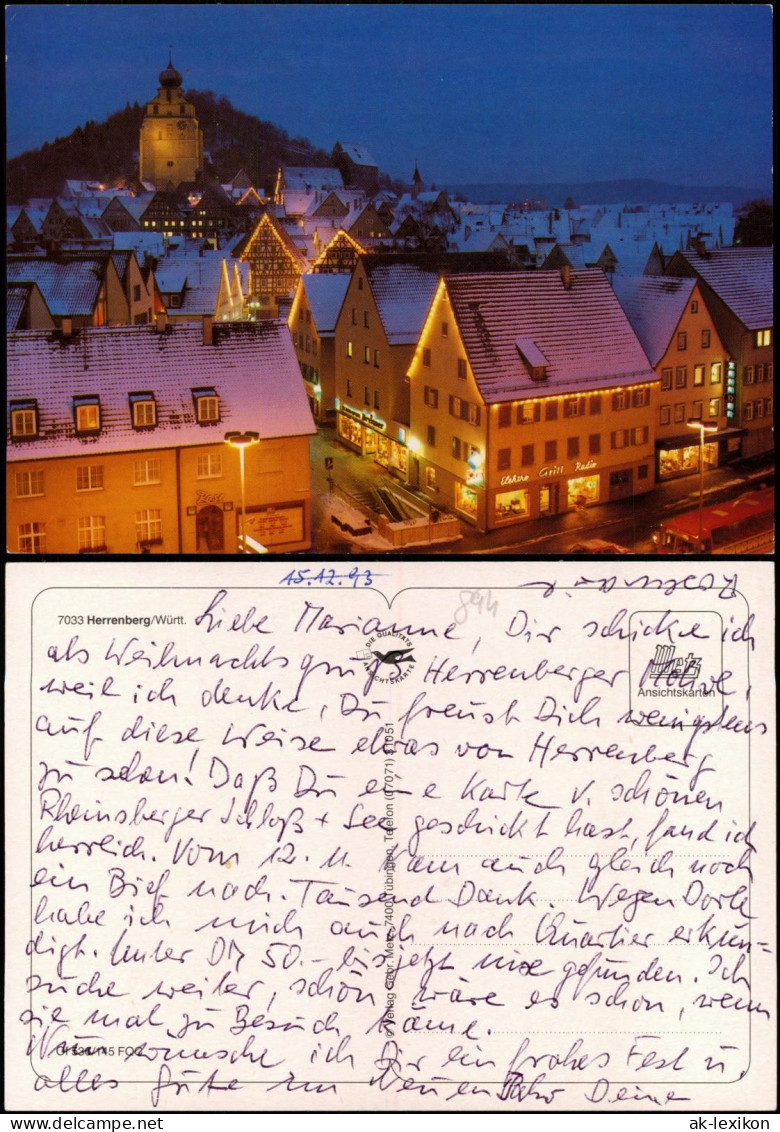 Elektro Grill Radio
15.12.93
7033 Herrenberg/Württ.
Liebe Marianne, Dir schicke ich
als Weihnachtsgruß Herrenberger
weil ich denke, Du freust Dich wenigstens
auf diese Weise etwas von Herrenberg
zu sehen! Daß Du eine Karte v. schönen
Rheinsberger Schloß + See geschickt hast, fand ich
herrlich. Vom 12. 11. kam auch gleich noch
ein Brief nach. Tausend Dank. Wegen Dorle
habe ich mich auch nach Quartier erkun-
digt. Unter DM 50.- bis jetzt nix gefunden. Ich
suche weiter, schön wäre es schon, wenn
sie mal zu Besuch käme.
Nun wünsche ich Dir ein frohes Fest u.
alles Gute im Neuen Jahr Deine
Rosemarie
DIE QUALITÄTS
ANSICHTSKARTE
Metz
Ansichtskarten
© Verlag Gebr. Metz, 7400 Tübingen, Telefon (07071)
ak-lexikon